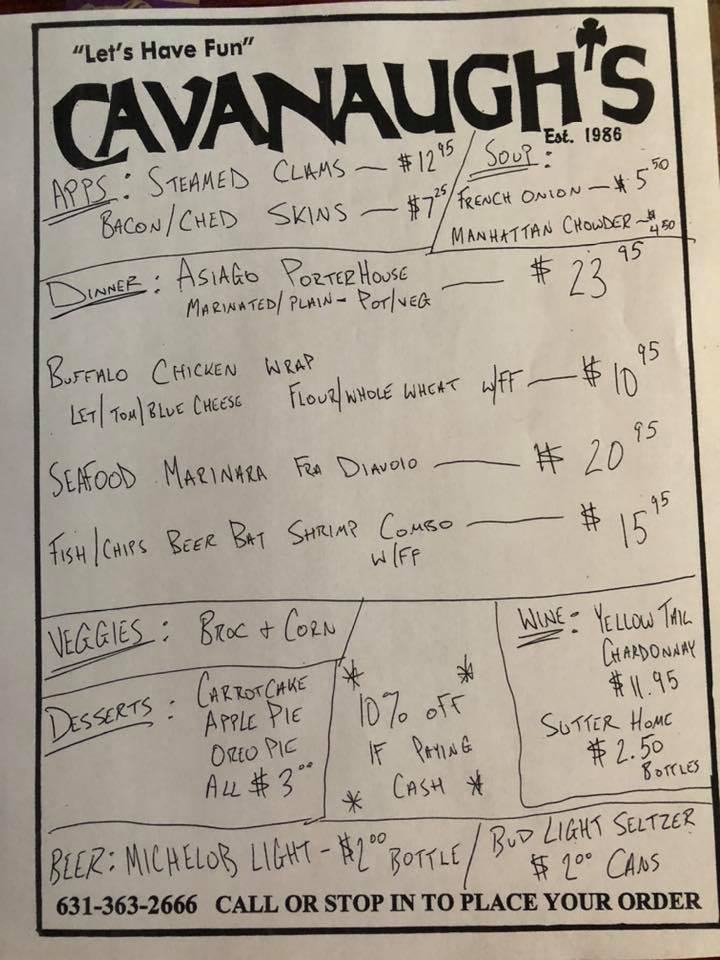 "Let's Have Fun"
CAVANAUGH'S
Est. 1986
APPS: STEAMED CLAMS — $12.95
BACON/CHED SKINS — $7.25
SOUP:
FRENCH ONION — $5.50
MANHATTAN CHOWDER — $4.50
DINNER: ASIAGO PORTERHOUSE — $23.95
MARINATED/PLAIN - POT/VEG
BUFFALO CHICKEN WRAP
LET/TOM/BLUE CHEESE FLOUR/WHOLE WHEAT W/FF — $10.95
SEAFOOD MARINARA FRA DIAVOLO — $20.95
FISH/CHIPS BEER BAT SHRIMP COMBO — $15.95
W/FF
VEGGIES: BROC + CORN
DESSERTS: CARROTCAKE
APPLE PIE
OREO PIE
ALL $3.00
* *
10% OFF
IF PAYING
* CASH *
WINE: YELLOW TAIL
CHARDONNAY
$11.95
SUTTER HOME
$2.50
BOTTLES
BEER: MICHELOB LIGHT - $2.00 BOTTLE / BUD LIGHT SELTZER
$2.00 CANS
631-363-2666 CALL OR STOP IN TO PLACE YOUR ORDER